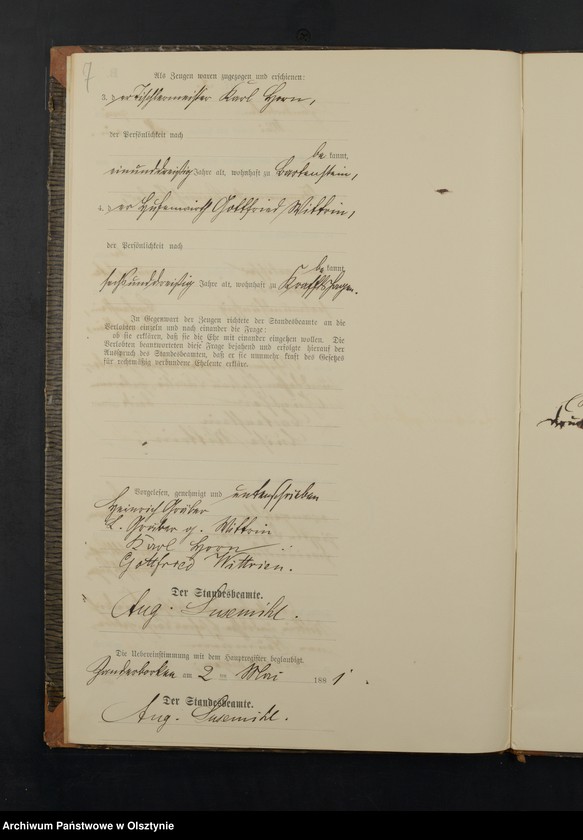 7
Als Zeugen waren zugezogen und erschienen:
3. der Tischlermeister Karl Horn,
der Persönlichkeit nach
be kannt,
einunddreißig Jahre alt, wohnhaft zu Bartenstein,
4. der Hufenwirth Gottfried Wittrin,
der Persönlichkeit nach
be kannt,
sechsunddreißig Jahre alt, wohnhaft zu Kraftshagen.
In Gegenwart der Zeugen richtete der Standesbeamte an die
Verlobten einzeln und nach einander die Frage:
ob sie erklären, daß sie die Ehe mit einander eingehen wollen. Die
Verlobten beantworteten diese Frage bejahend und erfolgte hierauf der
Ausspruch des Standesbeamten, daß er sie nunmehr kraft des Gesetzes
für rechtmäßig verbundene Eheleute erkläre.
Vorgelesen, genehmigt und unterschrieben
Heinrich Gröber
L. Gröber g. Wittrin
Karl Horn
Gottfried Wittrien.
Der Standesbeamte.
Aug. Susemihl.
Die Uebereinstimmung mit dem Hauptregister beglaubigt.
am 2 ten Mai 1881.
Der Standesbeamte.
Aug. Susemihl.
Archiwum Państwowe w Olsztynie